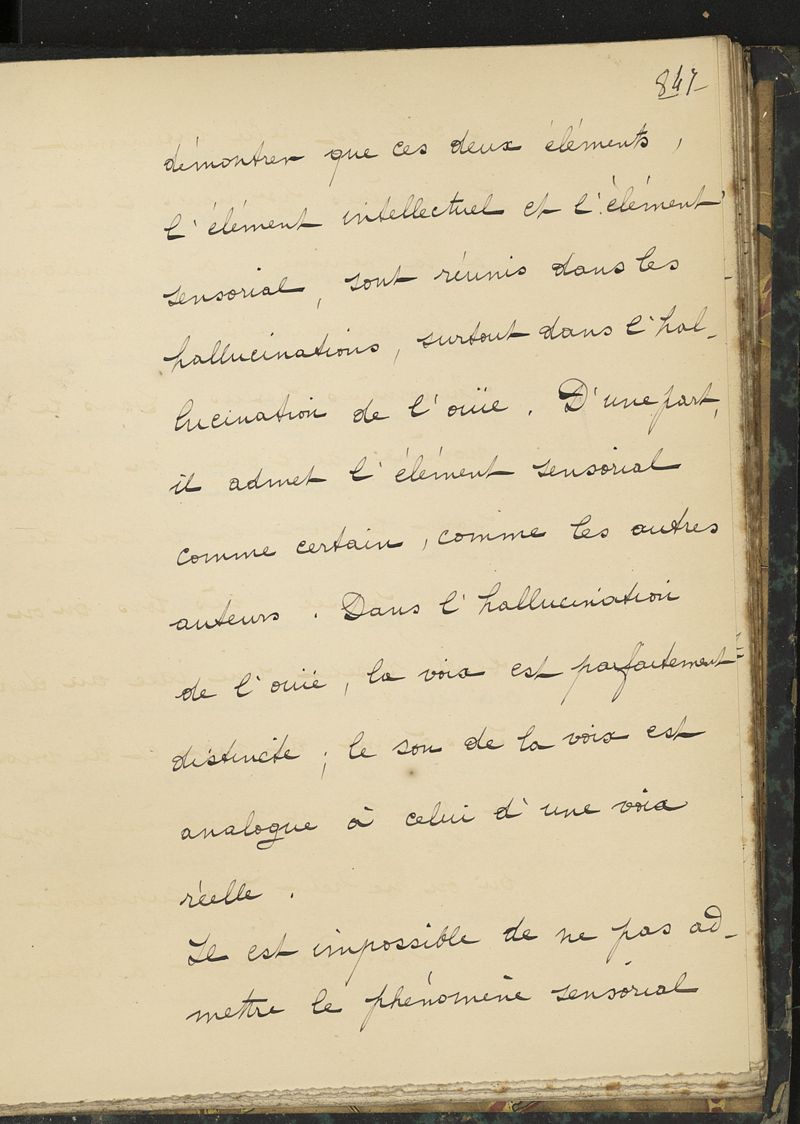 847
démontrer que ces deux éléments,
l'élément intellectuel et l'élément
sensorial, sont réunis dans les
hallucinations, surtout dans l'hal-
lucination de l'ouïe. D'une part,
il admet l'élément sensorial
comme certain, comme les autres
auteurs. Dans l'hallucination
de l'ouïe, la voix est parfaitement
distincte ; le son de la voix est
analogue à celui d'une voix
réelle.
Il est impossible de ne pas ad-
mettre le phénomène sensorial